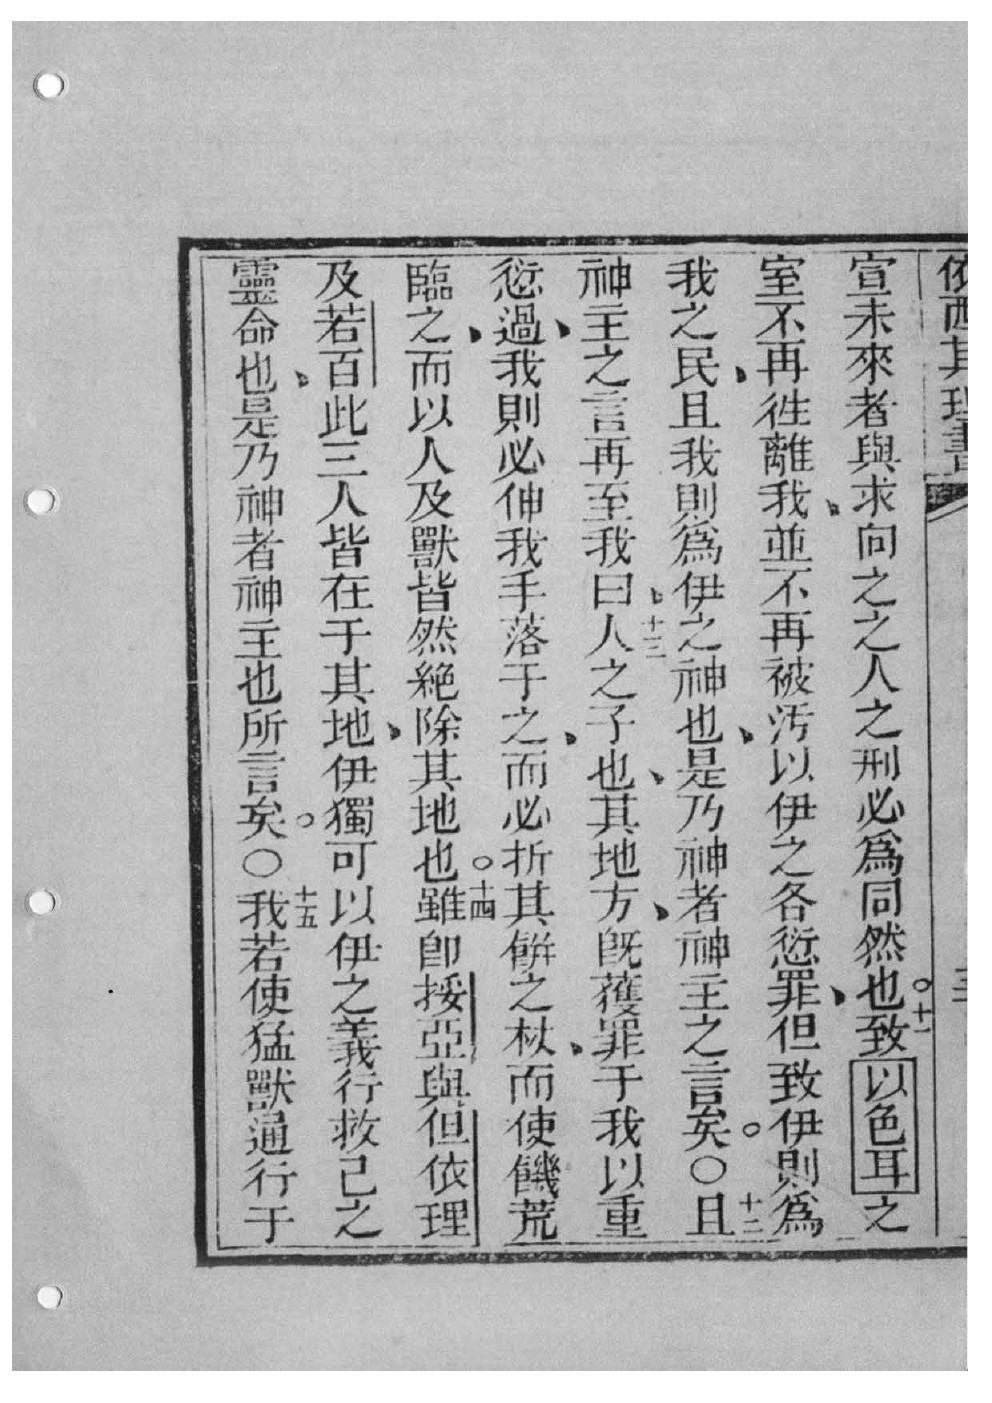 依西其理書
宣未來者與求向之之人之刑必爲同然也。十一致以色耳之
室不再徃離我、並不再被汚以伊之各愆罪、但致伊則爲
我之民、且我則爲伊之神也、是乃神者神主之言矣。〇十二且
神主之言再至我曰、十三人之子也、其地方、旣獲罪于我以重
愆過、我則必伸我手落于之、而必折其餅之杖、而使饑荒
臨之、而以人及獸皆然絕除其地也。十四雖卽挼亞與但依理
及若百此三人皆在于其地、伊獨可以伊之義行救己之
靈命也、是乃神者神主也所言矣。〇十五我若使猛獸通行于